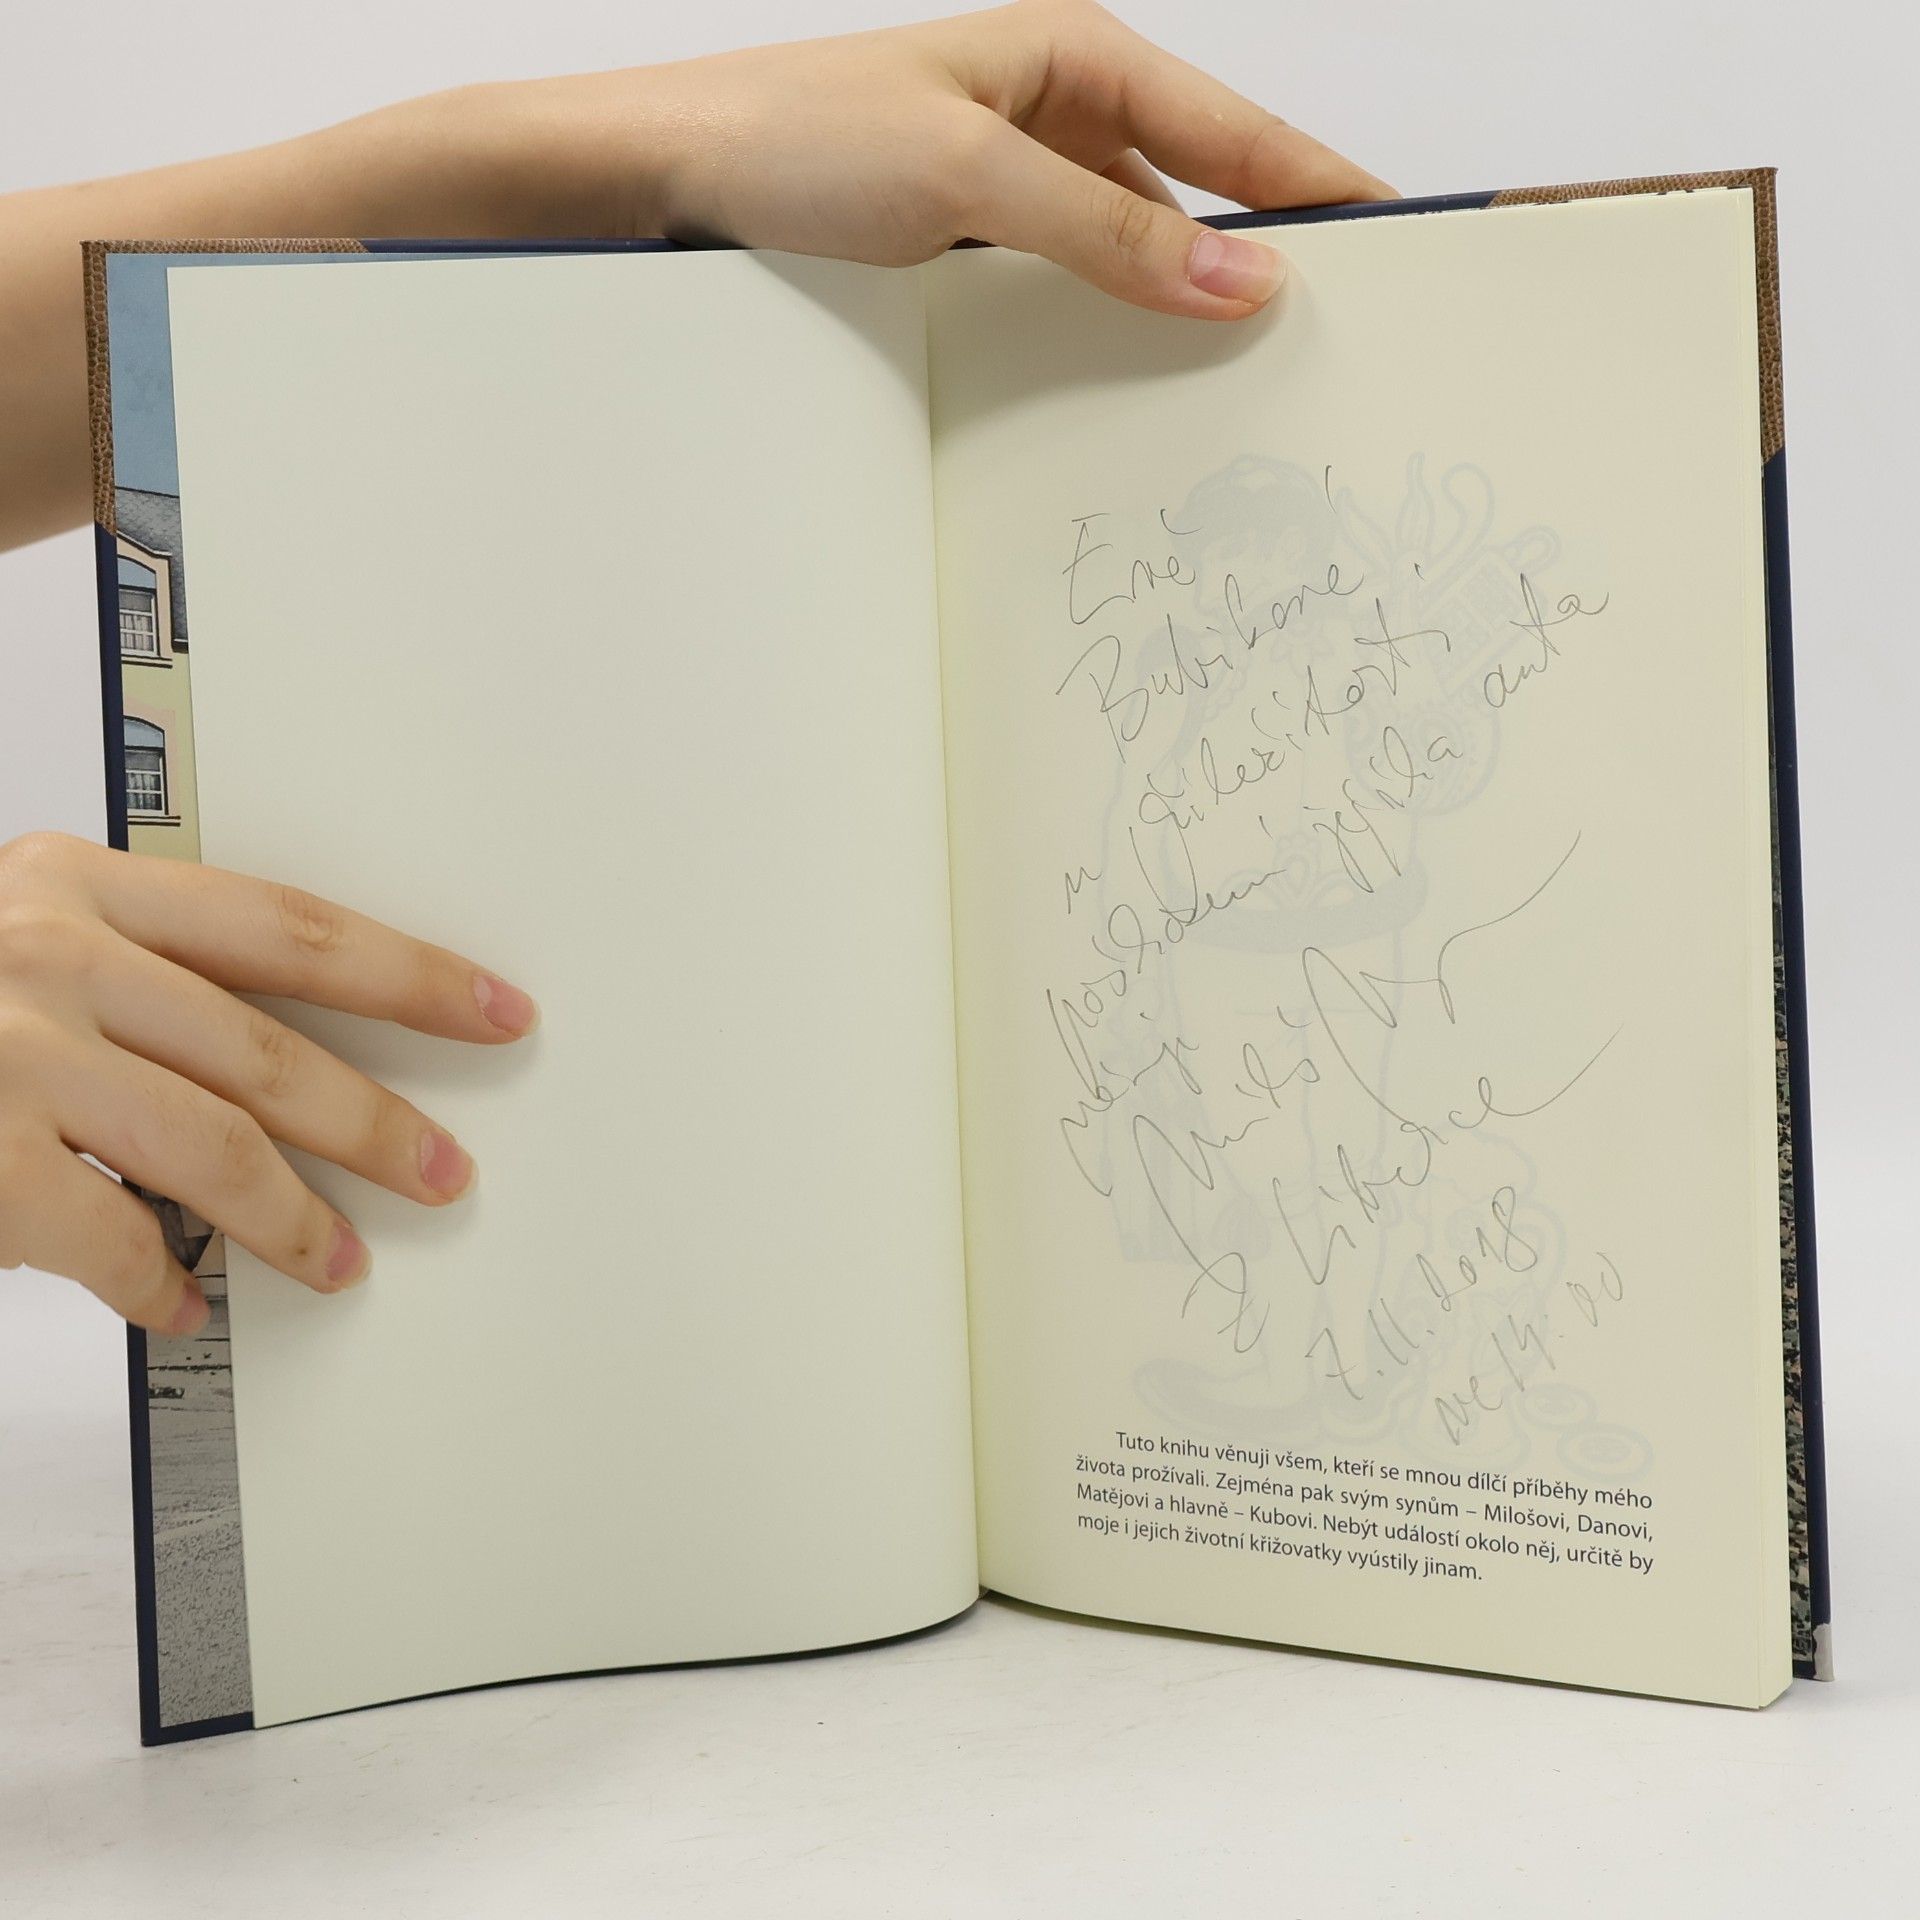 Evě
Bubikové
u příležitosti
poškození jejího auta
věnuji
Miloš
Z Liberce
7.11.2018
ve 14.00
Tuto knihu věnuji všem, kteří se mnou dílčí příběhy mého
života prožívali. Zejména pak svým synům – Milošovi, Danovi,
Matějovi a hlavně – Kubovi. Nebýt událostí okolo něj, určitě by
moje i jejich životní křižovatky vyústily jinam.